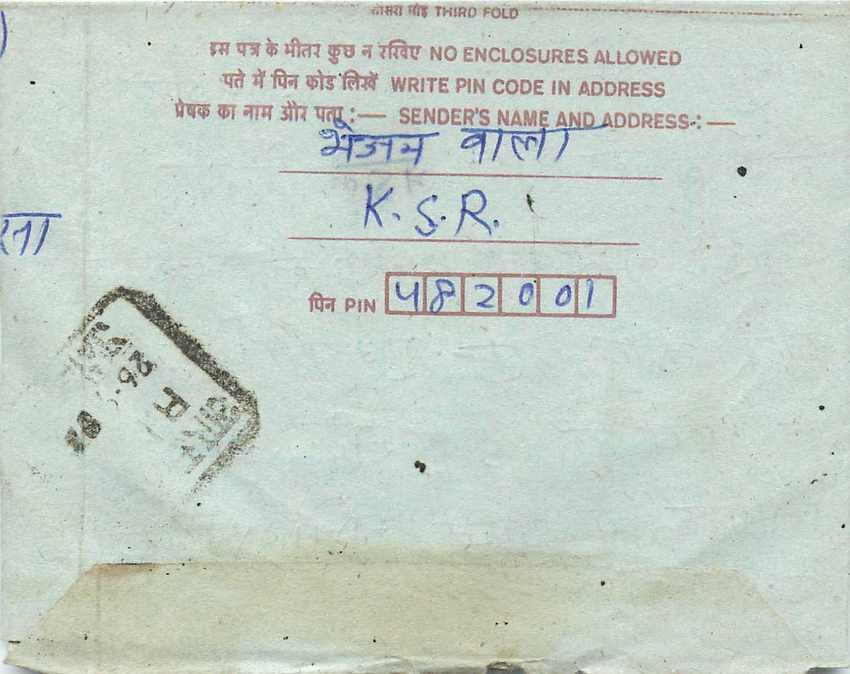 तीसरा मोड़ THIRD FOLD
इस पत्र के भीतर कुछ न रखिए NO ENCLOSURES ALLOWED
पते में पिन कोड लिखें WRITE PIN CODE IN ADDRESS
प्रेषक का नाम और पता :— SENDER'S NAME AND ADDRESS-:—
भेजन वाला
K.S.R.
पिन PIN 482001